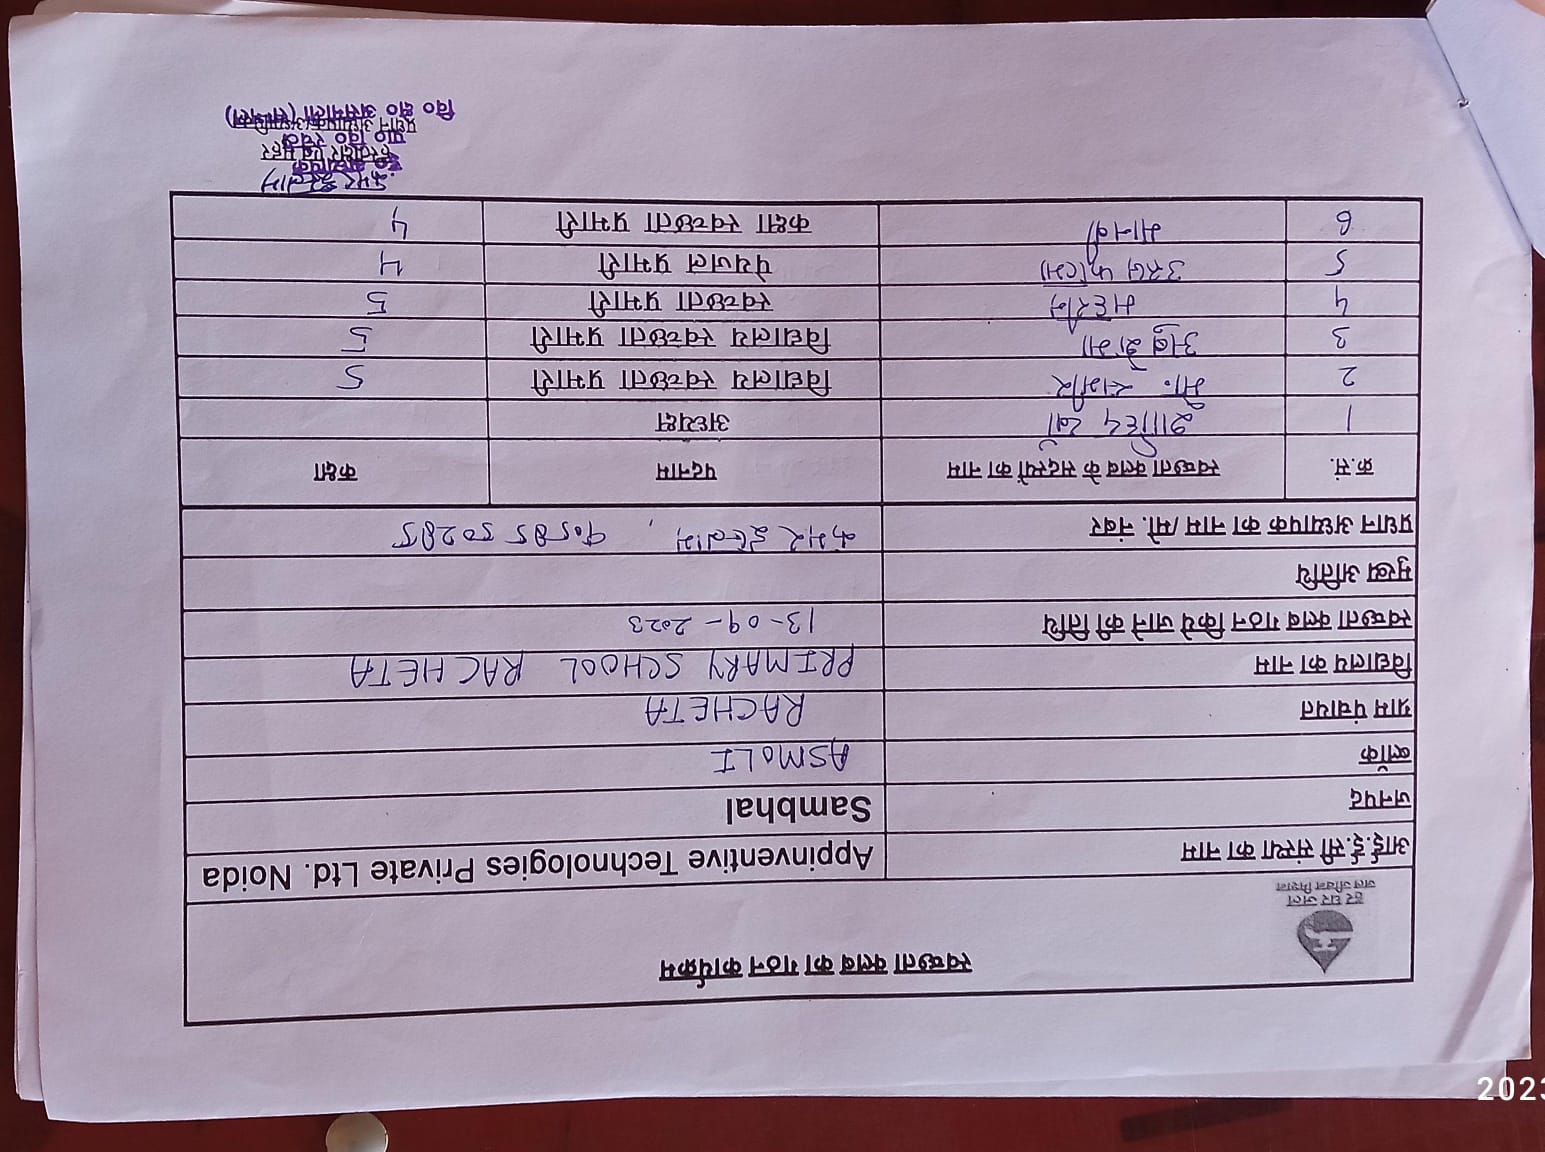 स्वच्छता क्लब का गठन कार्यक्रम
हर घर जल
जल जीवन मिशन
आई.ई.सी संस्था का नाम Appinventive Technologies Private Ltd. Noida
जनपद Sambhal
ब्लॉक ASMOLI
ग्राम पंचायत RACHETA
विद्यालय का नाम PRIMARY SCHOOL RACHETA
स्वच्छता क्लब गठन किये जाने की तिथि 13-09-2023
मुख्य अतिथि
प्रधान अध्यापक का नाम/मो. नंबर कमर इस्लाम,
क्र.सं. स्वच्छता क्लब के सदस्यों का नाम पदनाम कक्षा
1 अध्यक्ष
2 मो. समीर विद्यालय स्वच्छता प्रभारी 5
3 विद्यालय स्वच्छता प्रभारी 5
4 स्वच्छता प्रभारी 5
5 पेयजल प्रभारी 4
6 मानवी कक्षा स्वच्छता प्रभारी 4
कमर इस्लाम
हस्ताक्षर एवं मुहर
प्रा० वि० रचेटा
प्रधान अध्यापक/अध्यापिका
वि० क्षे० असमोली (सम्भल)
2023